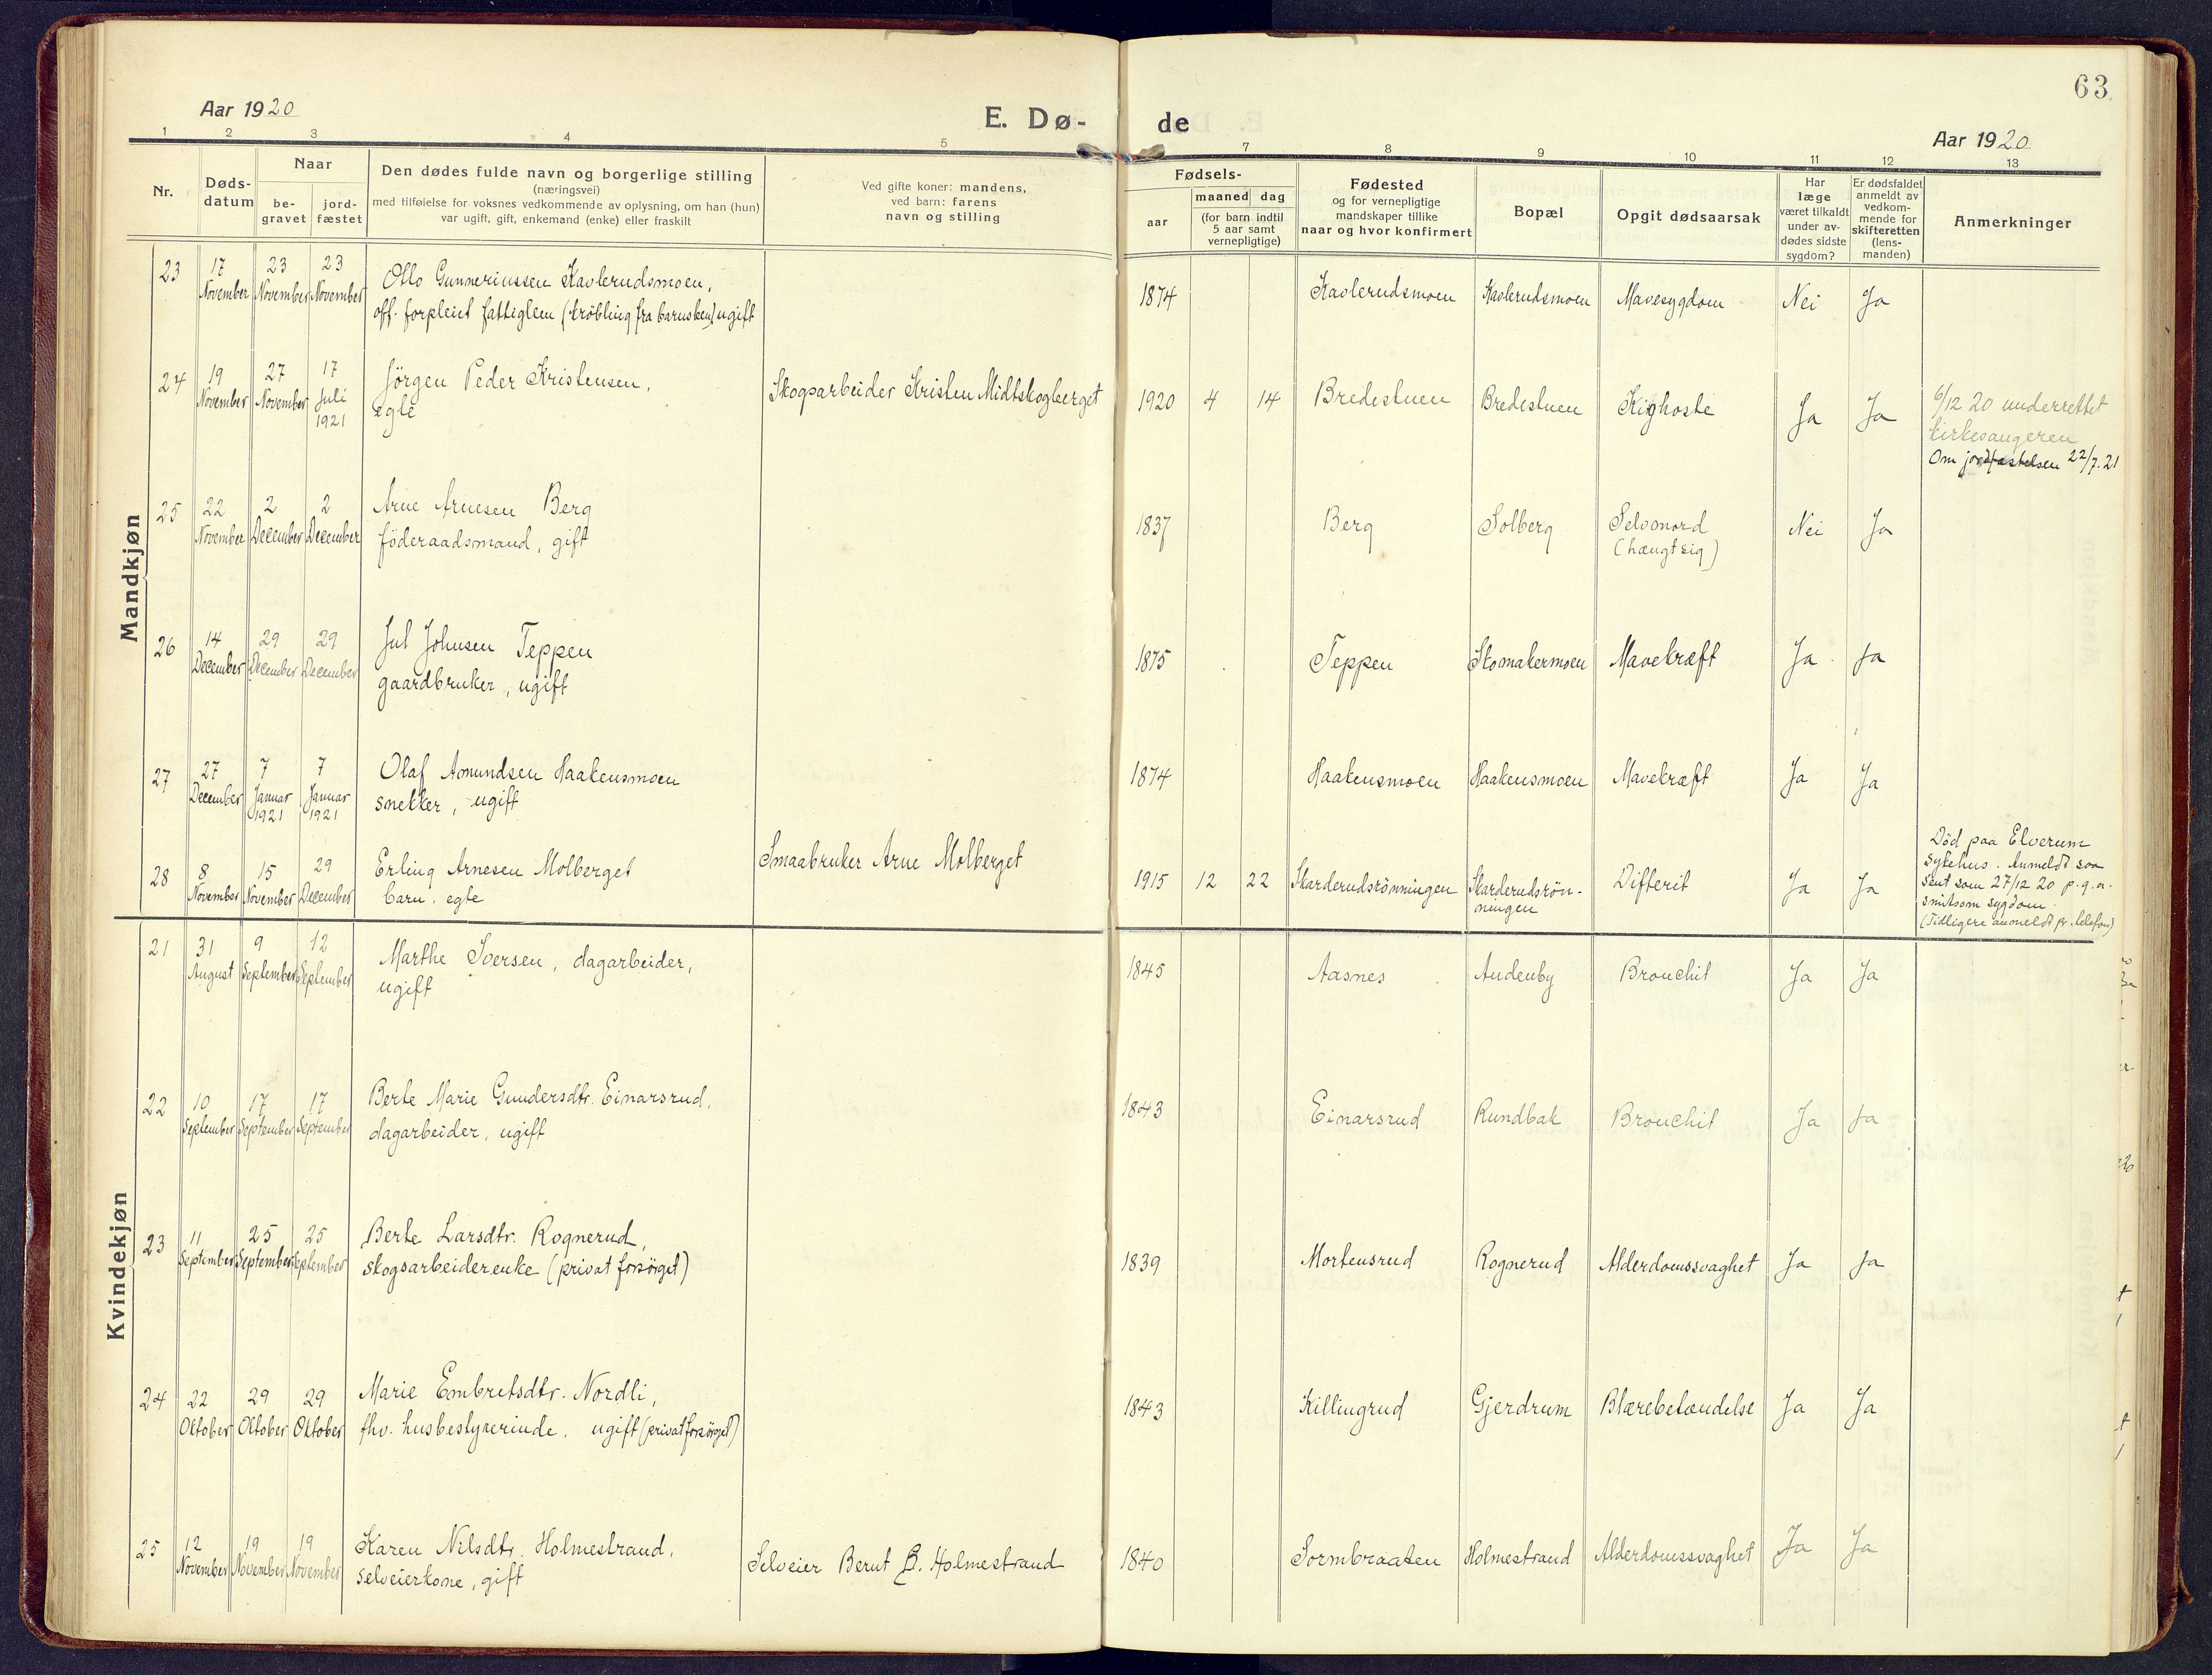 63
Aar 1920
E. Dø-
de
Aar 1920
1 2 3 4 5 7 8 9 10 11 12 13
Nr.
Døds-
datum
Naar
be-
gravet
jord-
fæstet
Den dødes fulde navn og borgerlige stilling
(næringsvei)
med tilføielse for voksnes vedkommende av oplysning, om han (hun)
var ugift, gift, enkemand (enke) eller fraskilt
Ved gifte koner: mandens,
ved barn: farens
navn og stilling
Fødsels-
aar
maaned dag
(for barn indtil
5 aar samt
vernepligtige)
Fødested
og for vernepligtige
mandskaper tillike
naar og hvor konfirmert
Bopæl
Opgit dødsaarsak
Har
læge
været tilkaldt
under av-
dødes sidste
sygdom?
Er dødsfaldet
anmeldt av
vedkom-
mende for
skifteretten
(lens-
manden)
Anmerkninger
Mandkjøn
23 17 November 23 November 23 November
Otto Gunneriussen Kavlerudsmoen,
off. forpleiet fattiglem (krøbling fra barnsben) ugift
1874 Kavlerudsmoen Kavlerudsmoen Mavesygdom Nei Ja
24 19 November 27 November 17 Juli 1921
Jörgen Peder Kristensen,
egte
Skogsarbeider Kristen Midtskogberget
1920 4 14 Bredestuen Bredestuen Kighoste Ja Ja
6/12 20 underrettet
kirkesangeren
Om jordfæstelsen 22/7.21
25 22 November 2 December 2 December
Arne Arnesen Berg
föderaadsmand, gift
1837 Berg Solberg Selvmord
(hængt sig)
Nei Ja
26 14 December 29 December 29 December
Jul Johnsen Teppen
gaardbruker, ugift
1875 Teppen Skomakermoen Mavekræft Ja Ja
27 27 December 7 Januar 1921 7 Januar 1921
Olaf Amundsen Haakensmoen
snekker, ugift
1874 Haakensmoen Haakensmoen Mavekræft Ja Ja
28 8 November 15 November 29 December
Erling Arnesen Molberget
barn, egte
Smaabruker Arne Molberget
1915 12 22 Skarderudsrönningen Skarderudsrön-
ningen
Difterit Ja Ja
Död paa Elverum
sykehus. Anmeldt saa
sent som 27/12 20 p.g.a.
smitsom sygdom.
(Tidligere anmeldt pr. telefon)
Kvindekjøn
21 31 August 9 September 12 September
Marthe Iversen, dagarbeider,
ugift
1845 Aasnes Audenby Bronchit Ja Ja
22 10 September 17 September 17 September
Berte Marie Gundersdtr. Einarsrud,
dagarbeider, ugift
1843 Einarsrud Rundbak Bronchit Ja Ja
23 11 September 25 September 25 September
Berte Larsdtr. Rognerud,
skogsarbeiderenke (privat forsörget)
1839 Mortensrud Rognerud Alderdomssvaghet Ja Ja
24 22 Oktober 29 Oktober 29 Oktober
Marie Embretsdtr. Nordli,
fhv. husbestyrerinde, ugift (privat forsörget)
1843 Killingrud Gjerdrum Blærebetændelse Ja Ja
25 12 November 19 November 19 November
Karen Nilsdtr. Holmestrand,
selveierkone, gift
Selveier Bernt B. Holmestrand
1840 Sormbraaten Holmestrand Alderdomssvaghet Ja Ja